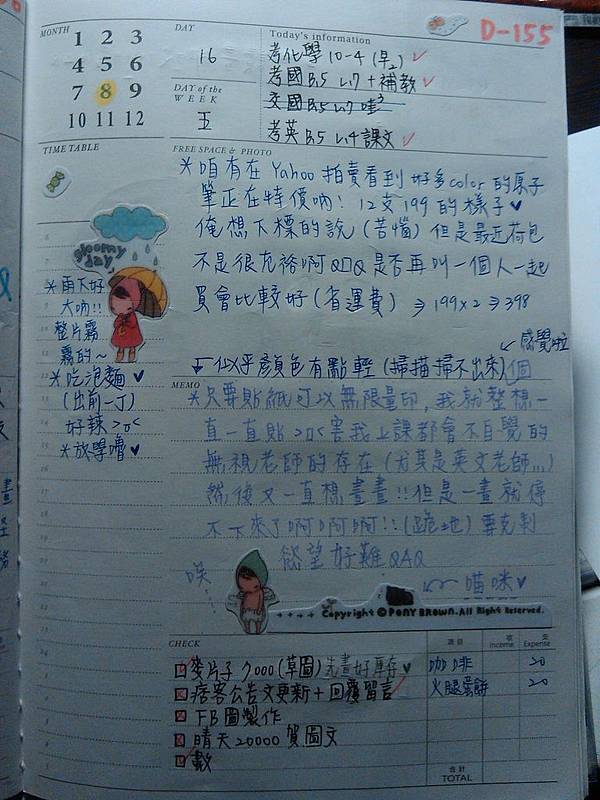 D-155
MONTH
1 2 3
4 5 6
7 8 9
10 11 12
DAY
16
DAY of the WEEK
五
Today's information
考化學10-4 (早2)
考國B.5 L.7 + 補教
交國B.5 L.7 哇3
考英B.5 L.4 課文
TIME TABLE
gloomy day
*雨下好
大吶!!
整片霧
霧的~
*吃泡麵♥
(出前一丁)
好辣>o<
*放學嚕♥
FREE SPACE & PHOTO
*咱有在Yahoo拍賣看到好多color的原子
筆正在特價吶! 12支199的樣子♥
俺想下標的說(苦惱)但是最近荷包
不是很充裕啊QAQ是否再叫一個人一起
買會比較好(省運費) ⇒199x2⇒398
感覺啦
似乎顏色有點輕(掃描掃不出來)個
MEMO
*只要貼紙可以無限量印,我就整想一
直一直貼>o<害我上課都會不自覺的
無視老師的存在(尤其是英文老師...)
然後又一直想畫畫!!但是一畫就停
不下來了啊啊啊!!(跪地)要克制
慾望好難QAQ
唉...
喵咪♥
Copyright © PONY BROWN. All Right Reserved.
CHECK
麥片子 7000 (草圖)先畫好庫存♥
痞客公告文更新+回覆留言
FB圖製作
晴天20000賀圖文
數
項目
收 Income
支 Expense
咖啡 20
火腿蛋餅 20
合計
TOTAL